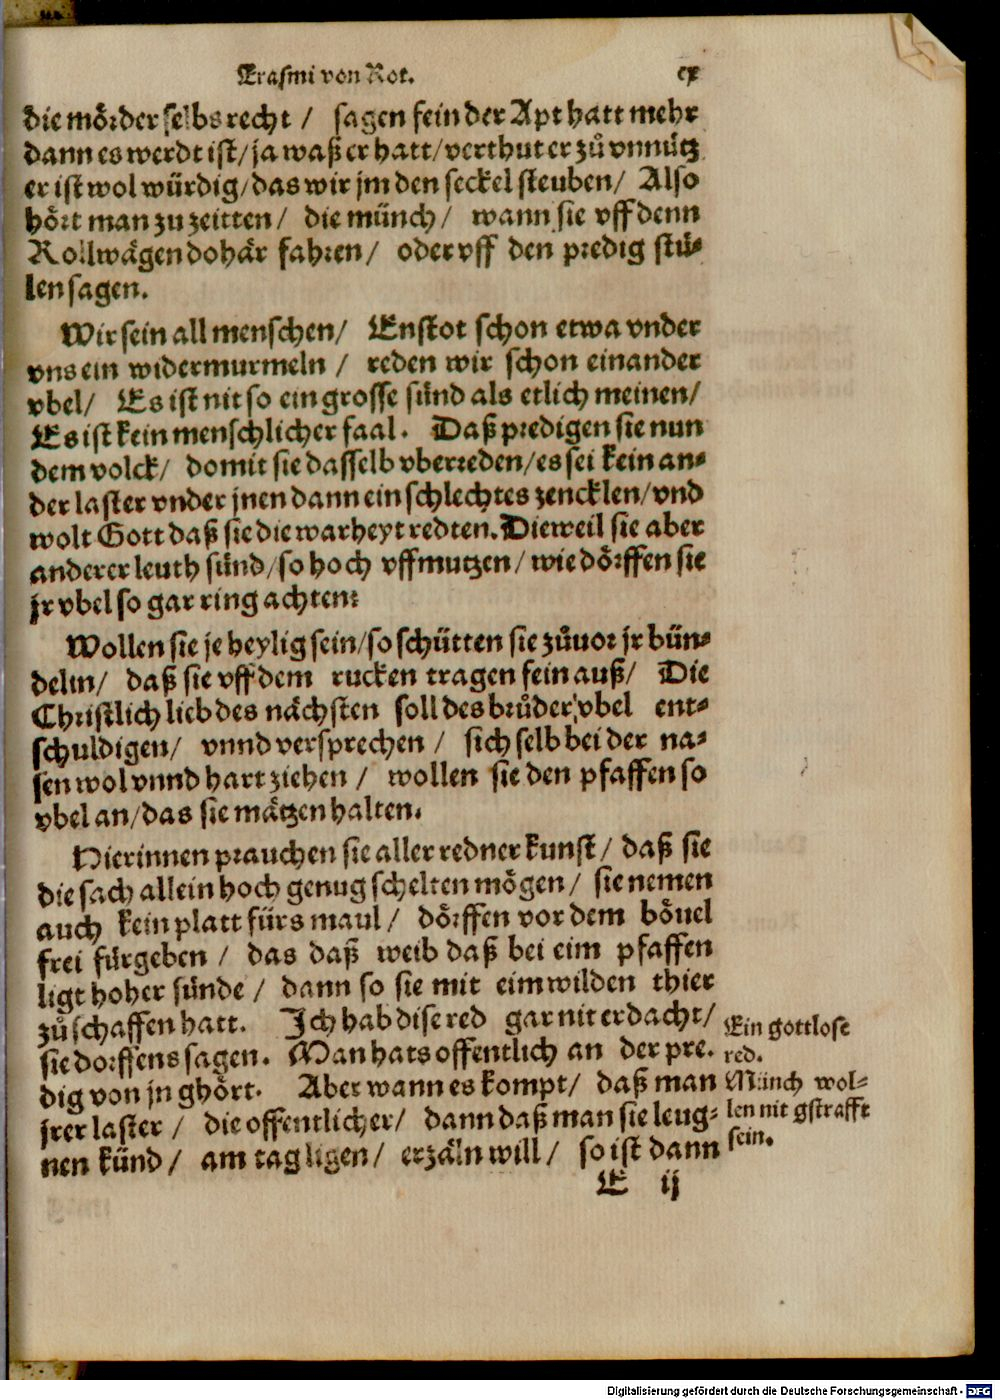 Erasmi von Rot. cx
die mörder selbs recht / sagen fein der Apt hatt mehr
dann es werdt ist/ ja waß er hatt/ verthut er zů vnnütz
er ist wol würdig/ das wir jm den seckel steuben/ Also
hört man zu zeitten/ die münch/ wann sie vff denn
Rollwägen dohär fahren/ oder vff den predig stü-
len sagen.
Wir sein all menschen/ Enstot schon etwa vnder
vns ein widermurmeln / reden wir schon einander
vbel/ Es ist nit so ein grosse sünd als etlich meinen/
Es ist kein menschlicher faal. Daß predigen sie nun
dem volck/ domit sie dasselb vberreden/ es sei kein an-
der laster vnder jnen dann ein schlechtes zencklen/ vnd
wolt Gott daß sie die warheyt redten. Dieweil sie aber
anderer leuth sünd/ so hoch vffmutzen/ wie dörffen sie
jr vbel so gar ring achten?
Wollen sie je heylig sein/ so schütten sie zůuor jr bün-
delin/ daß sie vff dem rucken tragen fein auß/ Die
Christlich lieb des nächsten soll des brůder vbel ent-
schuldigen/ vnnd versprechen / sich selb bei der na-
sen wol vnnd hart ziehen / wollen sie den pfaffen so
vbel an/ das sie mätzen halten.
Hierinnen prauchen sie aller redner kunst/ daß sie
die sach allein hoch genug schelten mögen/ sie nemen
auch kein platt fürs maul/ dörffen vor dem böuel
frei fürgeben / das daß weib daß bei eim pfaffen
ligt hoher sünde / dann so sie mit eim wilden thier
zů schaffen hatt. Ich hab dise red gar nit erdacht/
sie dorffens sagen. Man hats offentlich an der pre.
dig von jn ghört. Aber wann es kompt/ daß man
jrer laster / die offentlicher/ dann daß man sie leug-
nen künd/ am tag ligen/ erzäln will/ so ist dann
Ein gottlose
red.
Münch wol-
len nit gstrafft
sein.
E ij
Digitalisierung gefördert durch die Deutsche Forschungsgemeinschaft - DFG